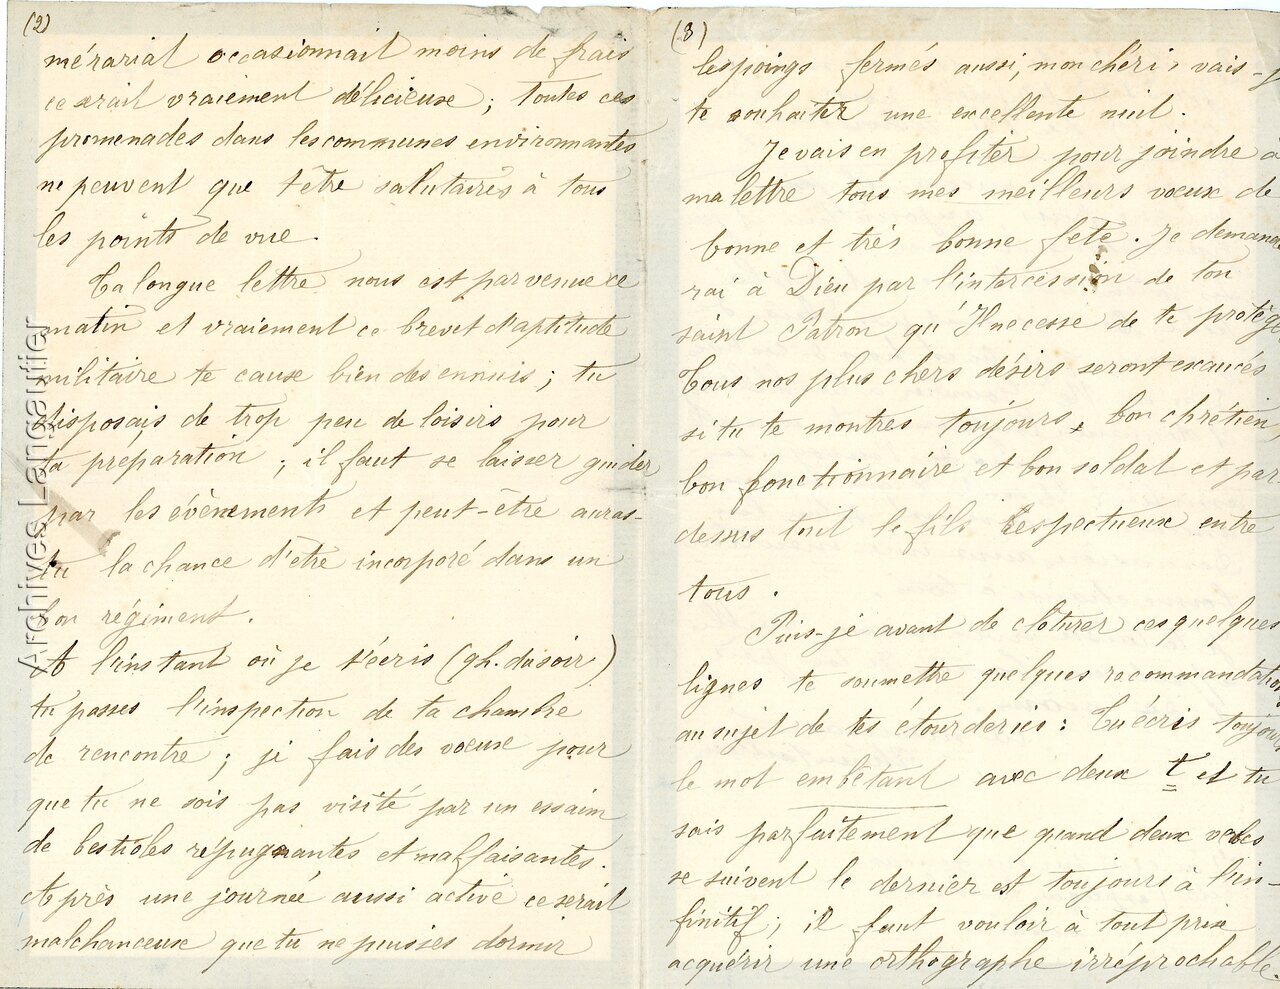 (2)
mérariat occasionnait moins de frais
ce serait vraiement délicieuse ; toutes ces
promenades dans les communes environnantes
ne peuvent que t'être salutaires à tous
les points de vue.
Ta longue lettre nous est parvenue ce
matin et vraiement ce brevet d'aptitude
militaire te cause bien des ennuis ; tu
disposais de trop peu de loisirs pour
ta préparation ; il faut se laisser guider
par les évènements et peut-être auras-
tu la chance d'être incorporé dans un
bon régiment.
A l'instant où je t'écris (9h. du soir)
tu passes l'inspection de ta chambre
de rencontre ; je fais des voeux pour
que tu ne sois pas visité par un essaim
de bestioles répugnantes et malfaisantes.
Après une journée aussi active ce serait
malchanceux que tu ne puisses dormir
(3)
les poings fermés aussi, mon chéri, vais-j
te souhaiter une excellente nuit.
Je vais en profiter pour joindre à
ma lettre tous mes meilleurs voeux de
bonne et très bonne fête. Je demande
rai à Dieu par l'intercession de ton
saint Patron qu'Il ne cesse de te protége
Tous nos plus chers désirs seront exaucés
si tu te montres toujours, bon chrétien,
bon fonctionnaire et bon soldat et par
dessus tout le fils respectueux entre
tous.
Puis-je avant de clôturer ces quelques
lignes te soumettre quelques recommandations
au sujet de tes étourderies : Tu écris toujours
le mot embêtant avec deux t et tu
sais parfaitement que quand deux verbes
se suivent le dernier est toujours à l'in-
finitif ; il faut vouloir à tout prix
acquérir une orthographe irréprochable.
Archives Langautier